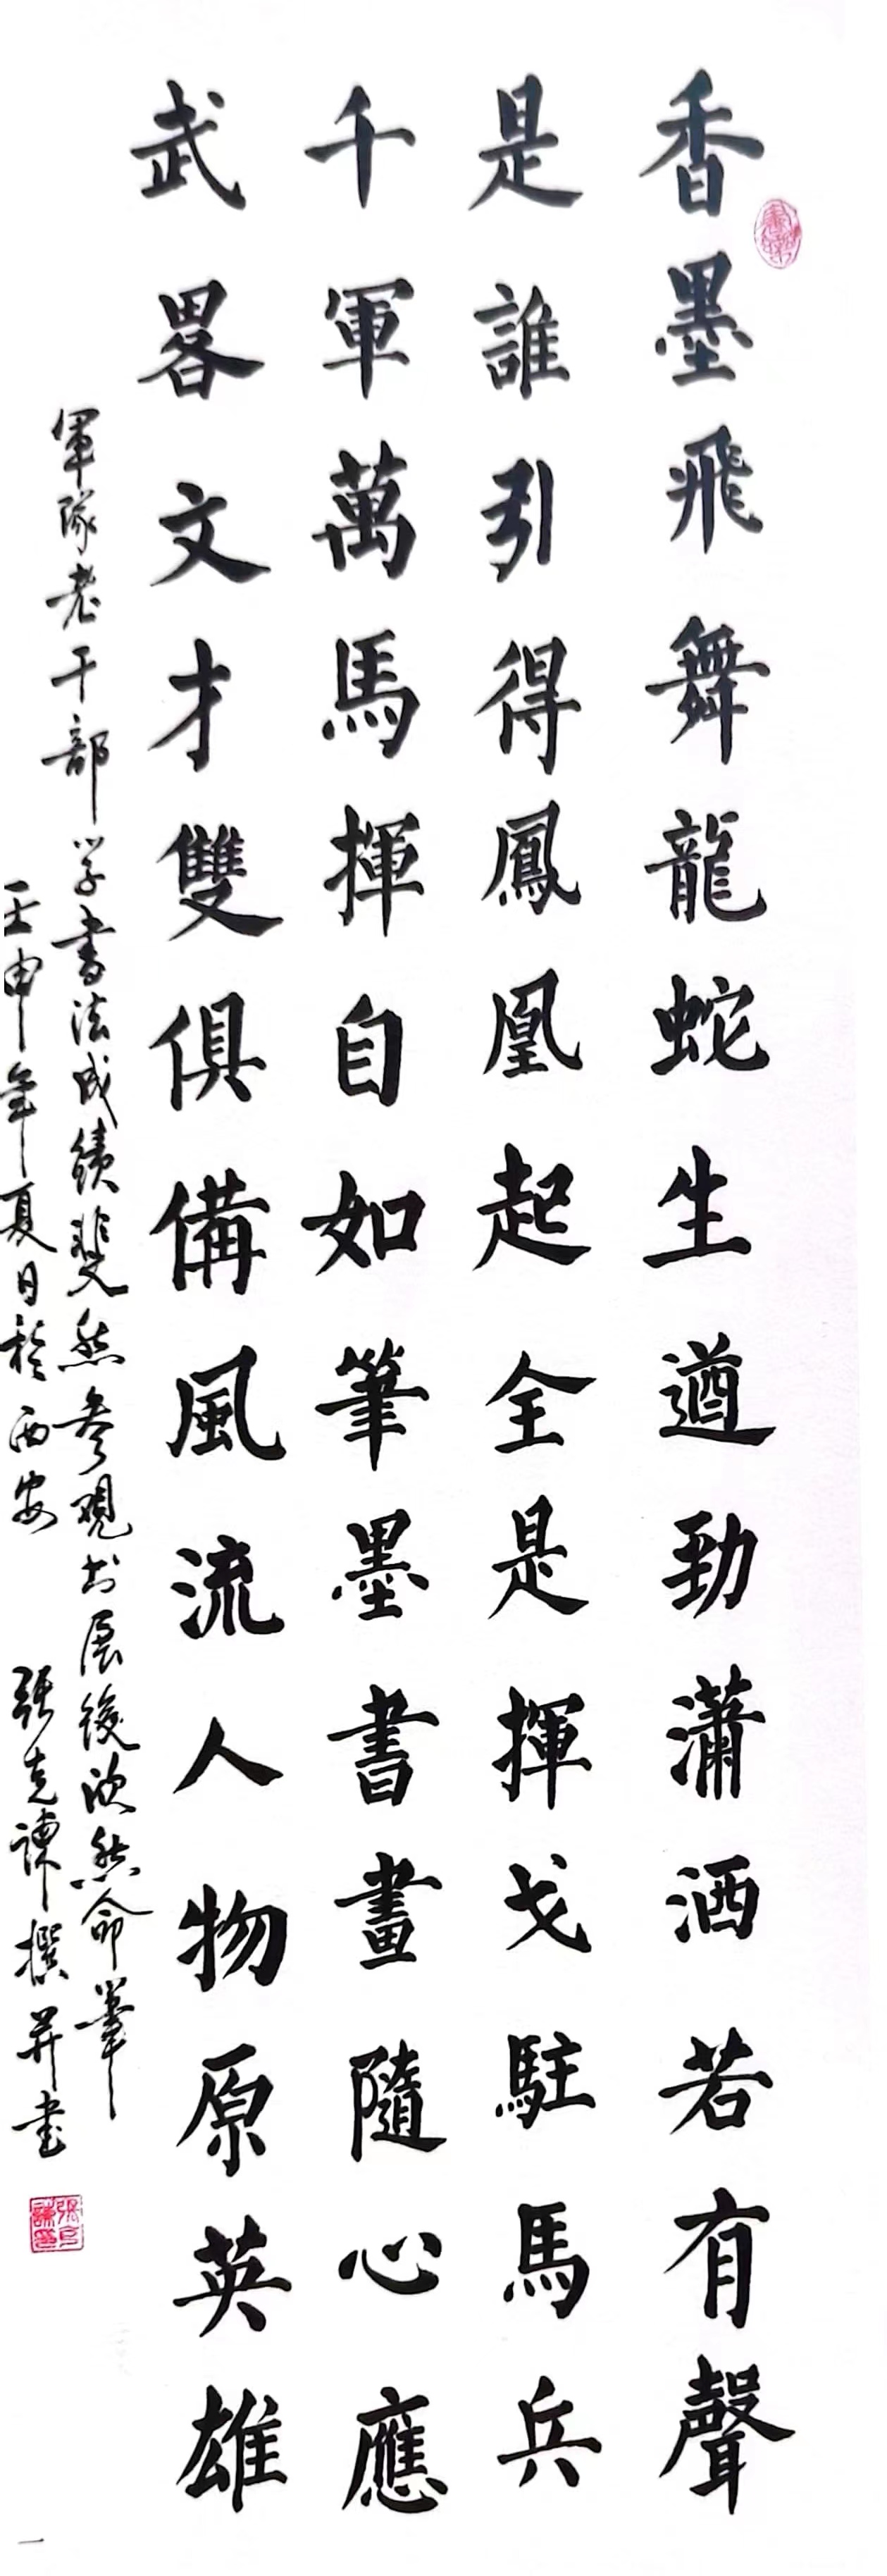 香墨飛舞龍蛇生遒勁瀟洒若有聲
是誰引得鳳凰起全是揮戈駐馬兵
千軍萬馬揮自如筆墨書畫隨心應
武畧文才雙俱備風流人物原英雄
軍隊老干部学書法成績斐然参观书展後欣然命筆
壬申年夏日於西安 張克谏撰并書